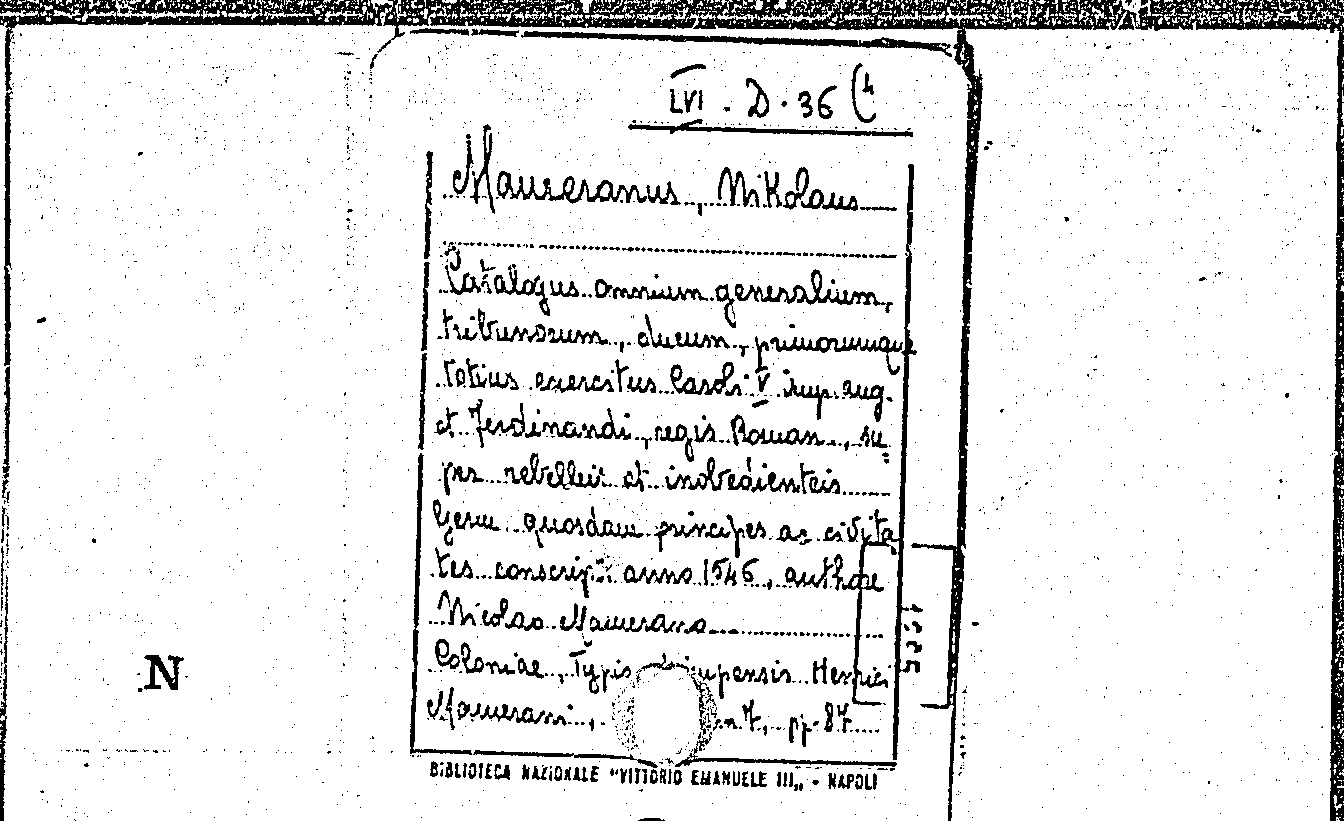 LVI . D . 36 (4
Mameranus, Nikolaus
Catalogus omnium generalium,
tribunorum, ducum, primorumque
totius exercitus Caroli V imp. aug.
et Ferdinandi, regis Roman., su=
per rebelleis et inobedienteis
Germ. quosdam principes ac civita
tes conscript. anno 1546, authore
Nicolao Mamerano
Coloniae, Typis Henrici
N
Mamerani, pp. 87
BIBLIOTECA NAZIONALE "VITTORIO EMANUELE III„ - NAPOLI